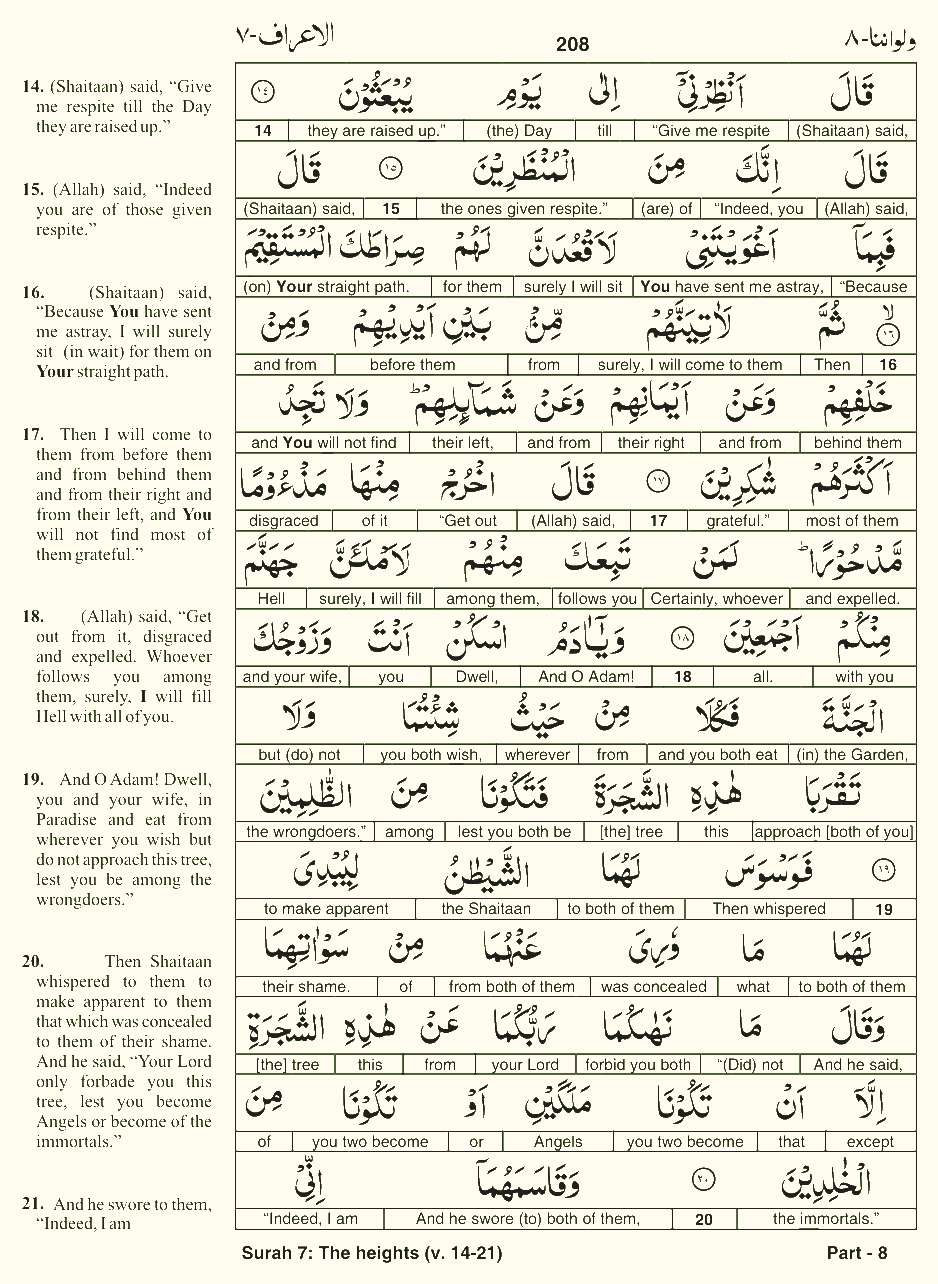 الاعراف-٧ 208 ولواننا-٨
14. (Shaitaan) said, “Give
me respite till the Day
they are raised up.”
15. (Allah) said, “Indeed
you are of those given
respite.”
16. (Shaitaan) said,
“Because You have sent
me astray, I will surely
sit (in wait) for them on
Your straight path.
17. Then I will come to
them from before them
and from behind them
and from their right and
from their left, and You
will not find most of
them grateful.”
18. (Allah) said, “Get
out from it, disgraced
and expelled. Whoever
follows you among
them, surely, I will fill
Hell with all of you.
19. And O Adam! Dwell,
you and your wife, in
Paradise and eat from
wherever you wish but
do not approach this tree,
lest you be among the
wrongdoers.”
20. Then Shaitaan
whispered to them to
make apparent to them
that which was concealed
to them of their shame.
And he said, “Your Lord
only forbade you this
tree, lest you become
Angels or become of the
immortals.”
21. And he swore to them,
“Indeed, I am
قَالَ اَنْظِرْنِيْٓ اِلٰى يَوْمِ يُبْعَثُوْنَ ١٤
14 they are raised up.” (the) Day till “Give me respite (Shaitaan) said,
قَالَ اِنَّكَ مِنَ الْمُنْظَرِيْنَ ١٥ قَالَ
(Shaitaan) said, 15 the ones given respite.” (are) of “Indeed, you (Allah) said,
فَبِمَآ اَغْوَيْتَنِيْ لَاَقْعُدَنَّ لَهُمْ صِرَاطَكَ الْمُسْتَقِيْمَ
(on) Your straight path. for them surely I will sit You have sent me astray, “Because
١٦ ۙ ثُمَّ لَاٰتِيَنَّهُمْ مِّنْۢ بَيْنِ اَيْدِيْهِمْ وَمِنْ
and from before them from surely, I will come to them Then 16
خَلْفِهِمْ وَعَنْ اَيْمَانِهِمْ وَعَنْ شَمَآئِلِهِمْ ؕ وَلَا تَجِدُ
and You will not find their left, and from their right and from behind them
اَكْثَرَهُمْ شٰكِرِيْنَ ١٧ قَالَ اخْرُجْ مِنْهَا مَذْءُوْمًا
disgraced of it “Get out (Allah) said, 17 grateful.” most of them
مَّدْحُوْرًا ؕ لَمَنْ تَبِعَكَ مِنْهُمْ لَاَمْلَـَٔنَّ جَهَنَّمَ
Hell surely, I will fill among them, follows you Certainly, whoever and expelled.
مِنْكُمْ اَجْمَعِيْنَ ١٨ وَيٰٓاٰدَمُ اسْكُنْ اَنْتَ وَزَوْجُكَ
and your wife, you Dwell, And O Adam! 18 all. with you
الْجَنَّةَ فَكُلَا مِنْ حَيْثُ شِئْتُمَا وَلَا
but (do) not you both wish, wherever from and you both eat (in) the Garden,
تَقْرَبَا هٰذِهِ الشَّجَرَةَ فَتَكُوْنَا مِنَ الظّٰلِمِيْنَ
the wrongdoers.” among lest you both be [the] tree this approach [both of you]
١٩ فَوَسْوَسَ لَهُمَا الشَّيْطٰنُ لِيُبْدِيَ
to make apparent the Shaitaan to both of them Then whispered 19
لَهُمَا مَا وٗرِيَ عَنْهُمَا مِنْ سَوْاٰتِهِمَا
their shame. of from both of them was concealed what to both of them
وَقَالَ مَا نَهٰىكُمَا رَبُّكُمَا عَنْ هٰذِهِ الشَّجَرَةِ
[the] tree this from your Lord forbid you both “(Did) not And he said,
اِلَّآ اَنْ تَكُوْنَا مَلَكَيْنِ اَوْ تَكُوْنَا مِنَ
of you two become or Angels you two become that except
الْخٰلِدِيْنَ ٢٠ وَقَاسَمَهُمَآ اِنِّيْ
“Indeed, I am And he swore (to) both of them, 20 the immortals.”
Surah 7: The heights (v. 14-21) Part - 8